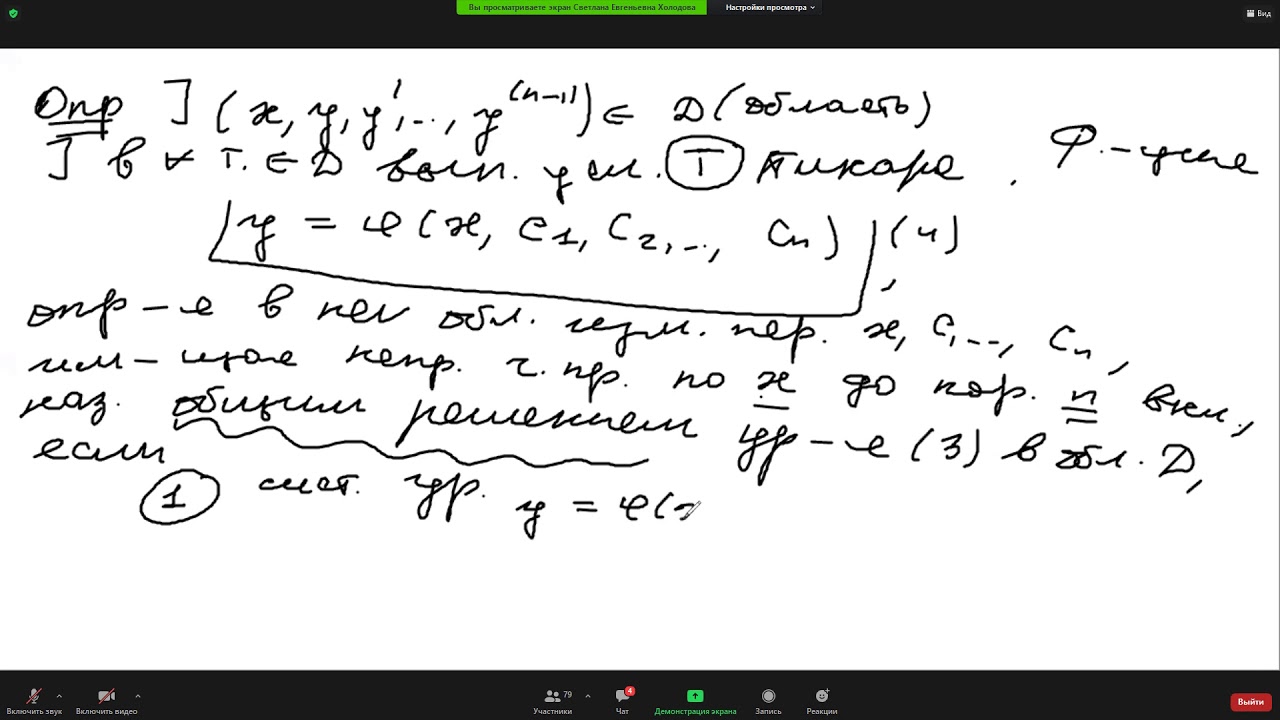 Вы просматриваете экран Светлана Евгеньевна Холодова
Настройки просмотра
Вид
Опр ] (x, y, y',.., y^(n-1)) ∈ D (область)
] в ∀ т. ∈ D вып. усл. Т Пикара. Ф.-ция
y = φ(x, C1, C2,..., Cn) (4),
опр-я в нек обл. изм. пер. x, C1,.., Cn,
им-щая непр. ч. пр. по x до пор. n вкл.,
наз. общим решением ур-я (3) в обл. D,
если
1 сист. ур. y = φ(x
Включить звук
Включить видео
79
Участники
4
Чат
Демонстрация экрана
Запись
Реакции
Выйти